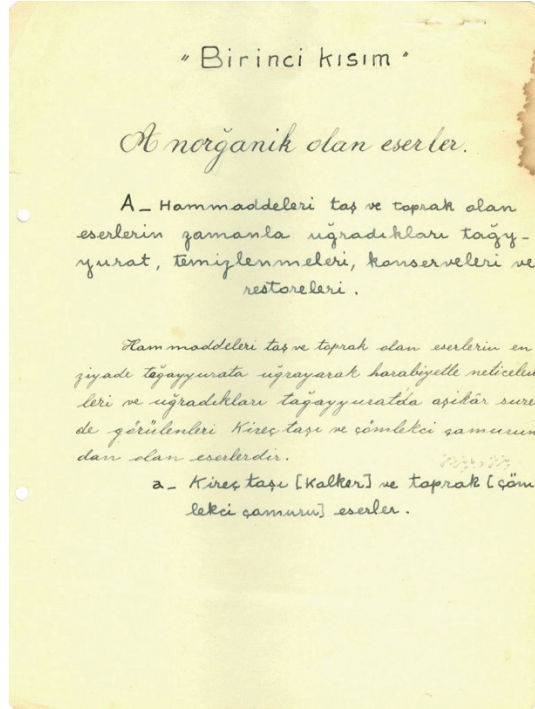 "Birinci kısım"
Anorğanik olan eserler.
A_ Hammaddeleri taş ve toprak olan
eserlerin zamanla uğradıkları tağy-
yurat, temizlenmeleri, konserveleri ve
restoreleri.
Hammaddeleri taş ve toprak olan eserlerin en
ziyade tağayyurata uğrayarak harabiyetle neticelen
leri ve uğradıkları tağayyuratda aşikâr sure
de görülenleri Kireç taşı ve çömlekci çamurun
dan olan eserlerdir.
a_ Kireç taşı [Kalker] ve toprak [çöm
lekci çamuru] eserler.